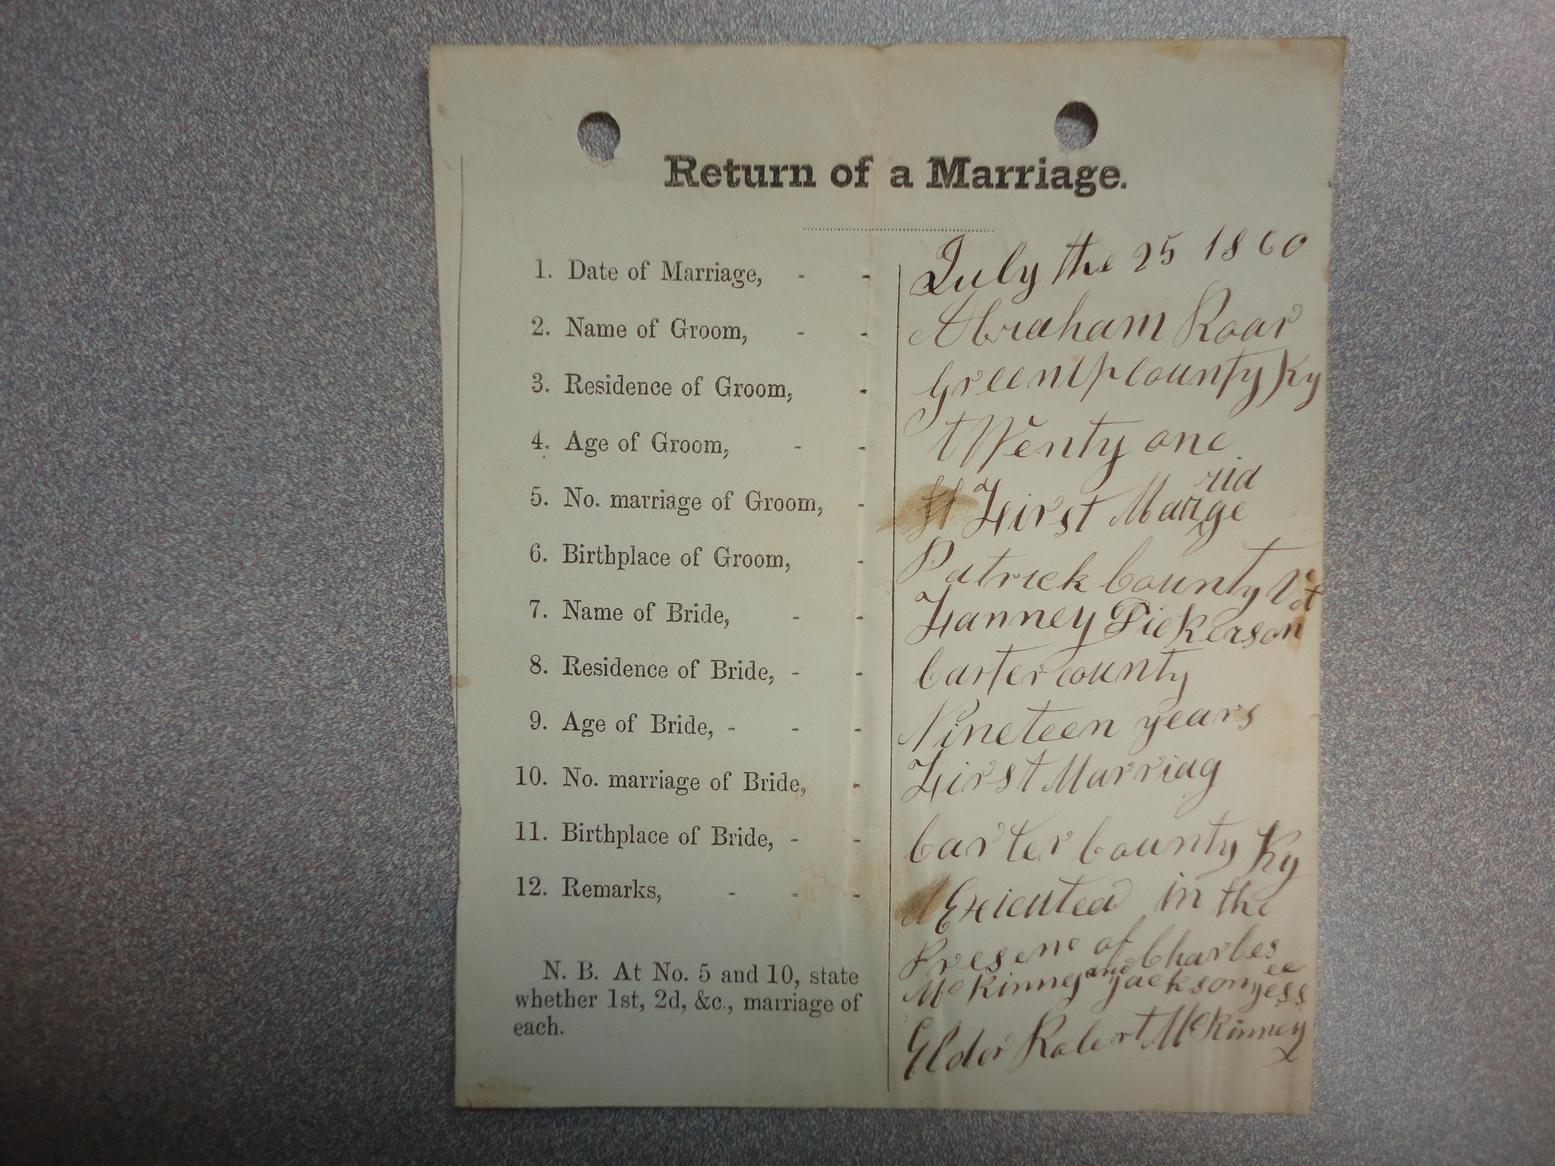 Return of a Marriage.
1. Date of Marriage, - - July the 25 1860
2. Name of Groom, - - Abraham Roar
3. Residence of Groom, - Greenup county Ky
4. Age of Groom, - - twenty one
5. No. marriage of Groom, - First Marriage
6. Birthplace of Groom, - Patrick County
7. Name of Bride, - - Fanney Dickerson
8. Residence of Bride, - - Carter county
9. Age of Bride, - - - Nineteen years
10. No. marriage of Bride, - First Marriag
11. Birthplace of Bride, - - Carter County Ky
12. Remarks, - - - Exicuted in the
Presenc of Charles
McKinney and Jackson
Elder Robert McKinney
N. B. At No. 5 and 10, state
whether 1st, 2d, &c., marriage of
each.